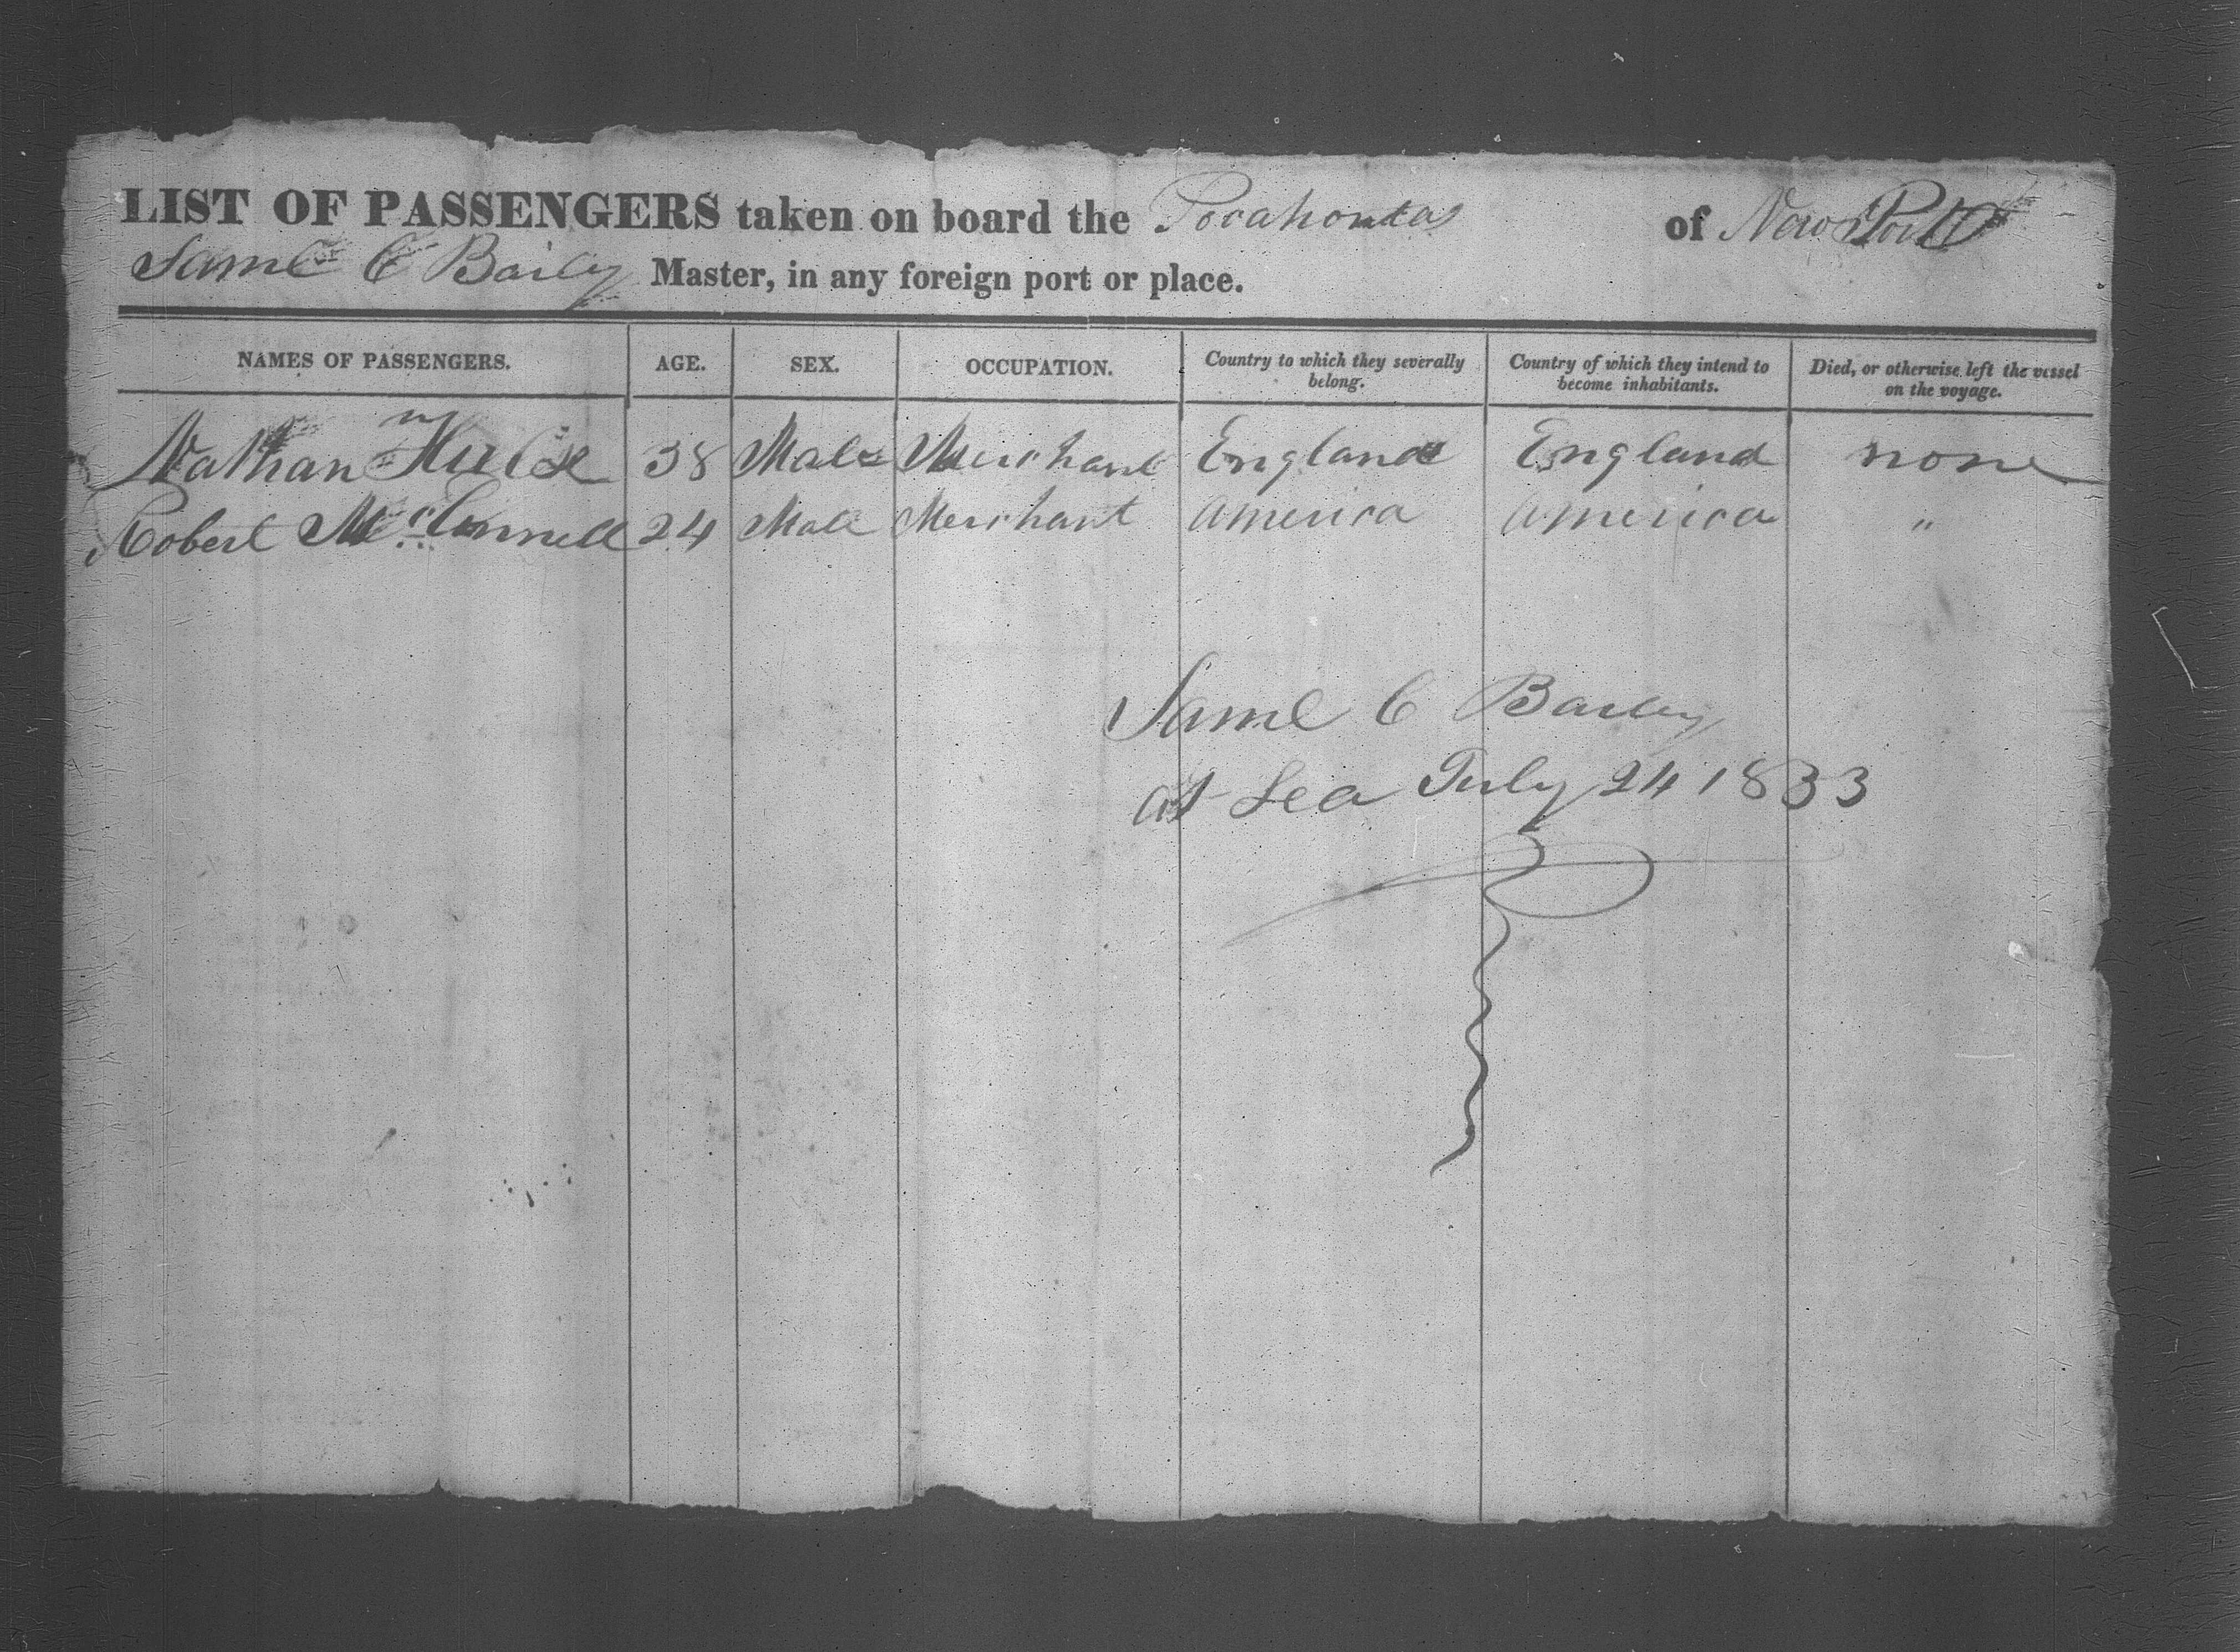 LIST OF PASSENGERS taken on board the Pocahontas of New Port
Saml C Baily Master, in any foreign port or place.
NAMES OF PASSENGERS. AGE. SEX. OCCUPATION. Country to which they severally belong. Country of which they intend to become inhabitants. Died, or otherwise left the vessel on the voyage.
Nathan 38 Male Merchant England England none
Robert McConnell 24 Male Merchant America America "
Saml C Bailey
at Sea July 24 1833